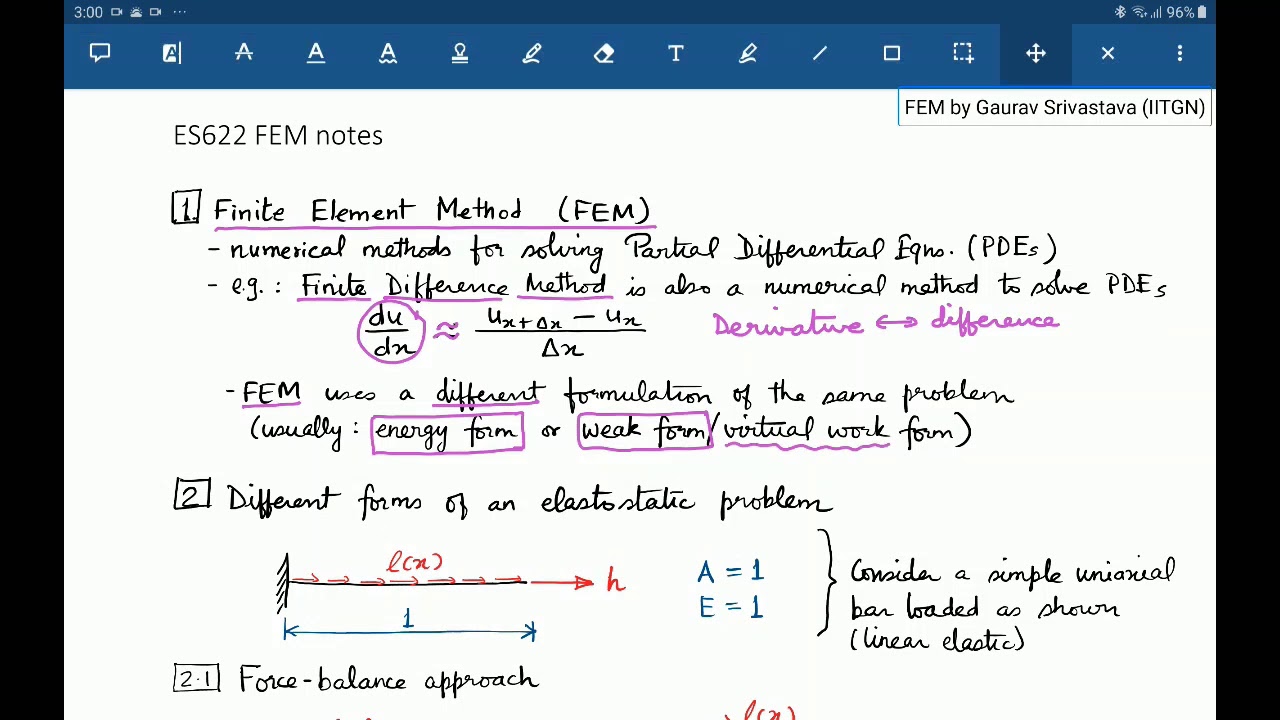 3:00
96%
T
FEM by Gaurav Srivastava (IITGN)
ES622 FEM notes
1. Finite Element Method (FEM)
- numerical methods for solving Partial Differential Eqns. (PDEs)
- e.g.: Finite Difference Method is also a numerical method to solve PDEs
du/dx ≈ (u_{x+Δx} - u_x)/Δx Derivative ↔ difference
- FEM uses a different formulation of the same problem
(usually: energy form or weak form/virtual work form)
2 Different forms of an elastostatic problem
l(x)
h
1
A = 1
E = 1
Consider a simple uniaxial
bar loaded as shown
(linear elastic)
2.1 Force-balance approach
l(x)